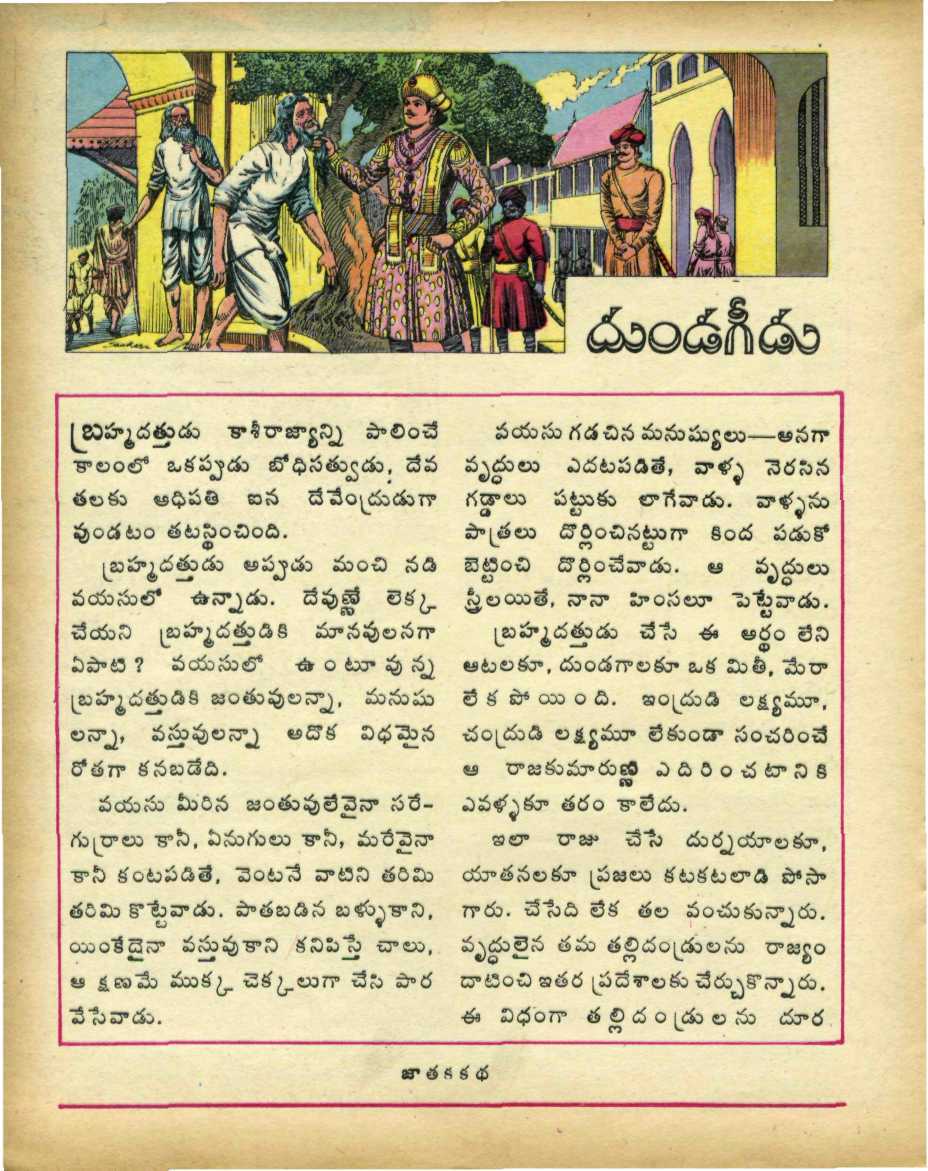 దుండగీడు
బ్రహ్మదత్తుడు కాశీరాజ్యాన్ని పాలించే
కాలంలో ఒకప్పుడు బోధిసత్వుడు, దేవ
తలకు అధిపతి ఐన దేవేంద్రుడుగా
వుండటం తటస్థించింది.
బ్రహ్మదత్తుడు అప్పుడు మంచి నడి
వయసులో ఉన్నాడు. దేవుణ్ణే లెక్క
చేయని బ్రహ్మదత్తుడికి మానవులనగా
ఏపాటి? వయసులో ఉంటూవున్న
బ్రహ్మదత్తుడికి జంతువులన్నా, మనుషు
లన్నా, వస్తువులన్నా అదొక విధమైన
రోతగా కనబడేది.
వయసు మీరిన జంతువులేవైనా సరే-
గుర్రాలు కానీ, ఏనుగులు కానీ, మరేవైనా
కానీ కంటపడితే, వెంటనే వాటిని తరిమి
తరిమి కొట్టేవాడు. పాతబడిన బళ్ళుకాని,
యింకేదైనా వస్తువుకాని కనిపిస్తే చాలు,
ఆ క్షణమే ముక్క చెక్కలుగా చేసి పార
వేసేవాడు.
వయసు గడచిన మనుష్యులు—అనగా
వృద్ధులు ఎదటపడితే, వాళ్ళ నెరసిన
గడ్డాలు పట్టుకు లాగేవాడు. వాళ్ళను
పాత్రలు దొర్లించినట్టుగా కింద పడుకో
బెట్టించి దొర్లించేవాడు. ఆ వృద్ధులు
స్త్రీలయితే, నానా హింసలూ పెట్టేవాడు.
బ్రహ్మదత్తుడు చేసే ఈ అర్థం లేని
ఆటలకూ, దుండగాలకూ ఒక మితీ, మేరా
లేకపోయింది. ఇంద్రుడి లక్ష్యమూ,
చంద్రుడి లక్ష్యమూ లేకుండా సంచరించే
ఆ రాజకుమారుణ్ణి ఎదిరించటానికి
ఎవళ్ళకూ తరం కాలేదు.
ఇలా రాజు చేసే దుర్నయాలకూ,
యాతనలకూ ప్రజలు కటకటలాడి పోసా
గారు. చేసేది లేక తల వంచుకున్నారు.
వృద్ధులైన తమ తల్లిదండ్రులను రాజ్యం
దాటించి ఇతర ప్రదేశాలకు చేర్చుకొన్నారు.
ఈ విధంగా తల్లిదండ్రులను దూర
జాతకకథ